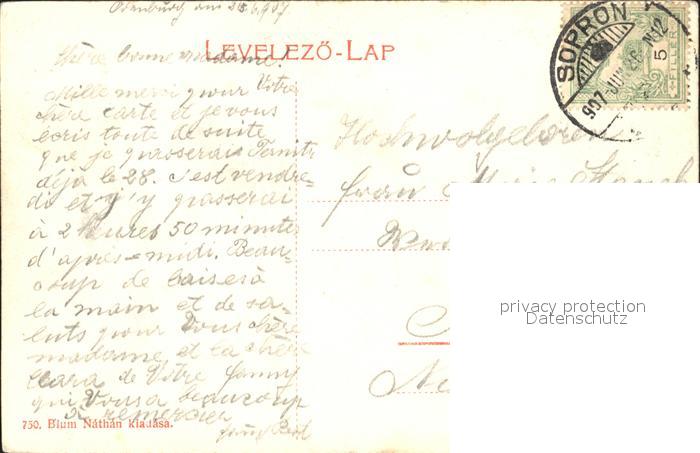 Ödenburg am 26.6.907
LEVELEZŐ-LAP
SOPRON
907 JUN 26 N12
5
FILLER
Chère bonne madame!
Mille merci pour Vôtre
chère carte et je vous
écris toute de suite
que je passerai
déjà le 28. c'est vendre-
di et j'y passerai
à 2 heures 50 minutes
d'après-midi. Beau-
coup de baisers à
la main et de sa-
luts pour Vous chère
madame et la chère
Clara de Vôtre fanny
qui Vous a beaucoup
à remercier
Hochwolgeboren
frau Marie
privacy protection
Datenschutz
750. Blum Náthán kiadása.